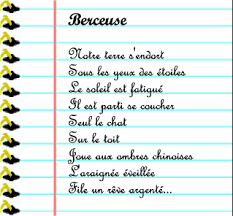 Berceuse
Notre terre s'endort
Sous les yeux des étoiles
Le soleil est fatigué
Il est parti se coucher
Seul le chat
Sur le toit
Joue aux ombres chinoises
L'araignée éveillée
File un rêve argenté...